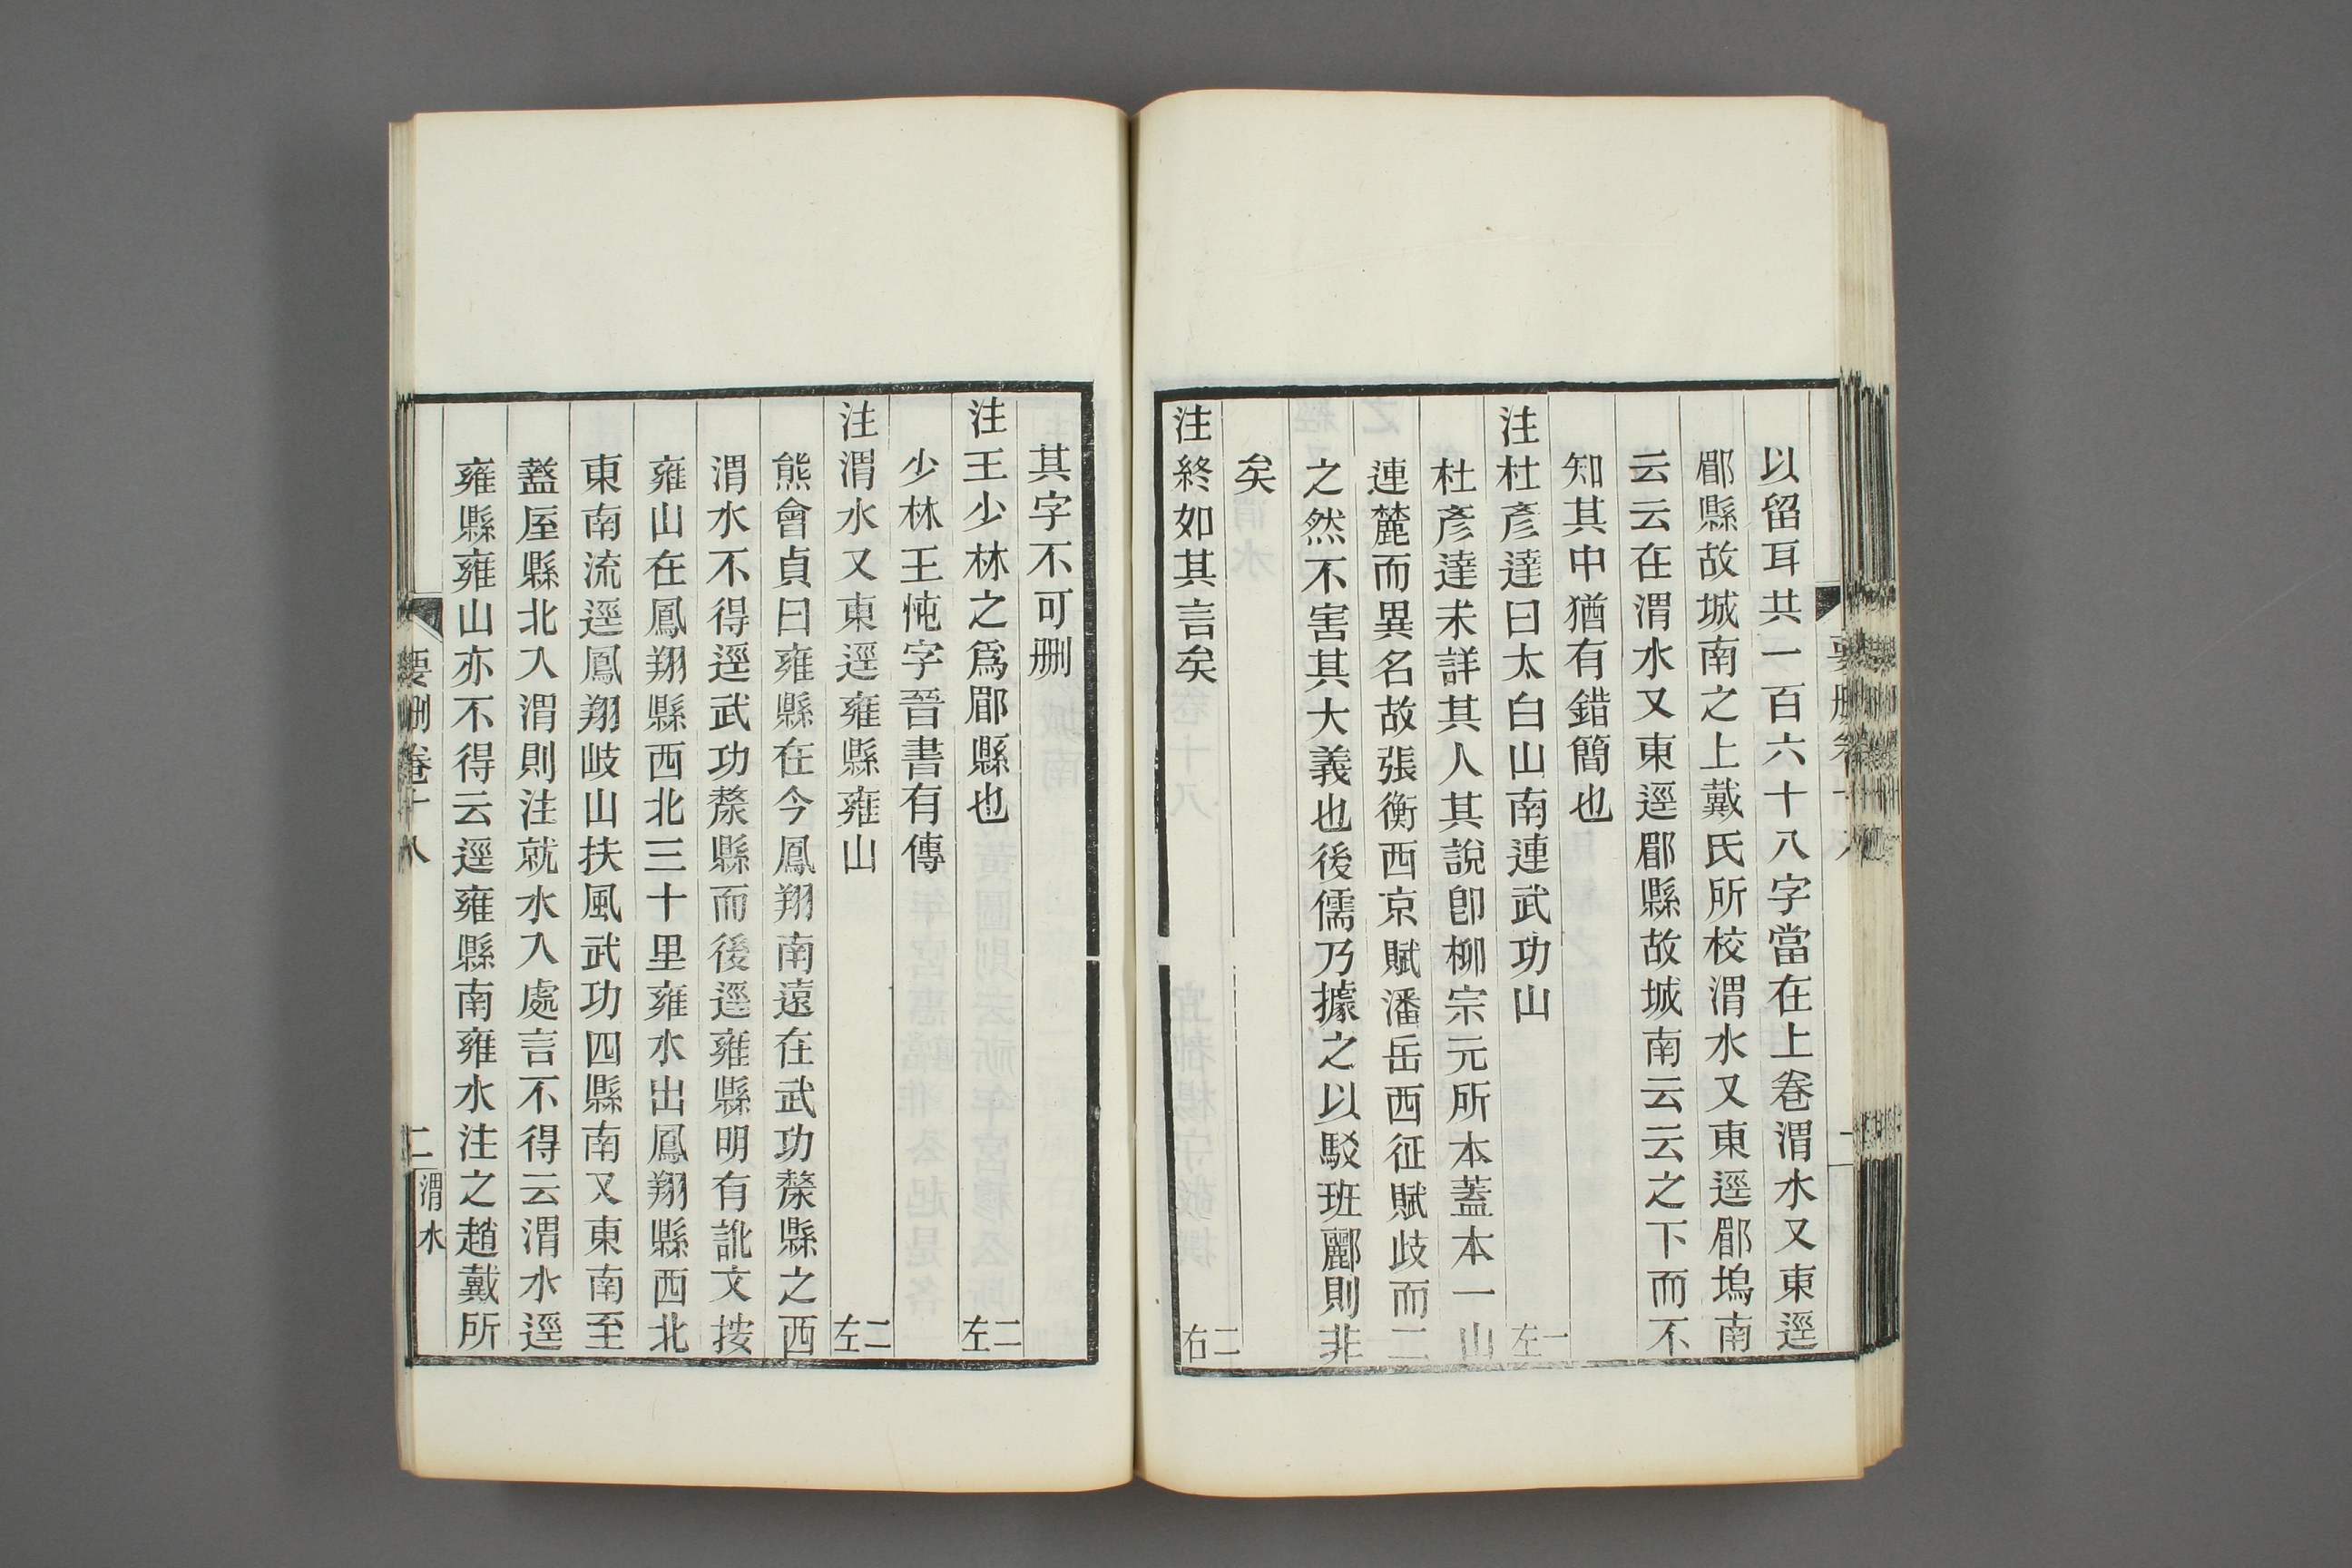 以留耳共一百六十八字當在上卷渭水又東逕
郿縣故城南之上戴氏所校渭水又東逕郿塢南
云云在渭水又東逕郿縣故城南云云之下而不
知其中猶有錯簡也
注杜彥達曰太白山南連武功山 一左
杜彥達未詳其人其說卽柳宗元所本蓋本一山
連麓而異名故張衡西京賦潘岳西征賦歧而二
之然不害其大義也後儒乃據之以駁班酈則非
矣
注終如其言矣 二右
其字不可删
注王少林之爲郿縣也 二左
少林王忳字晉書有傳
注渭水又東逕雍縣雍山 二左
熊會貞曰雍縣在今鳳翔南遠在武功斄縣之西
渭水不得逕武功斄縣而後逕雍縣明有訛文按
雍山在鳳翔縣西北三十里雍水出鳳翔縣西北
東南流逕鳳翔岐山扶風武功四縣南又東南至
盩厔縣北入渭則注就水入處言不得云渭水逕
雍縣雍山亦不得云逕雍縣南雍水注之趙戴所
要删卷十八 二 渭水